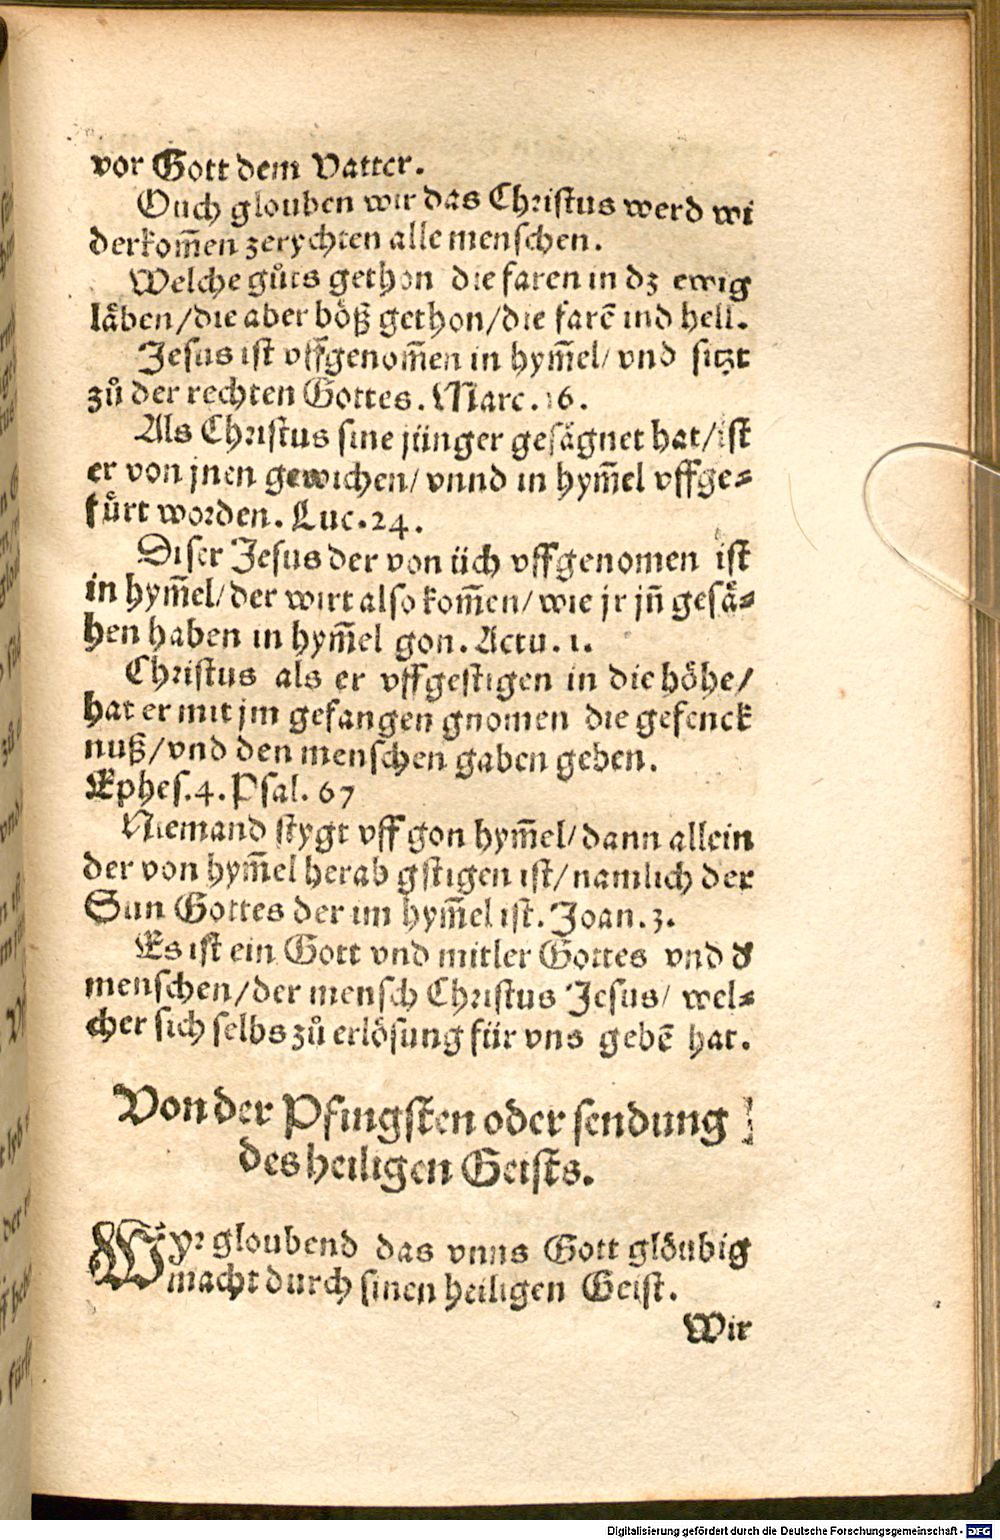 vor Gott dem Vatter.
Ouch glouben wir das Christus werd wi
derkom̄en zerychten alle menschen.
Welche gůts gethon die faren in dz ewig
läben/die aber böß gethon/die farē ind hell.
Jesus ist vffgenom̄en in hym̄el/ vnd sitzt
zů der rechten Gottes. Marc. 16.
Als Christus sine jünger gesägnet hat/ist
er von jnen gewichen/ vnnd in hym̄el vffge⸗
fürt worden. Luc. 24.
Diser Jesus der von üch vffgenomen ist
in hym̄el/der wirt also kom̄en/ wie jr jn̄ gesä⸗
hen haben in hym̄el gon. Actu. 1.
Christus als er vffgestigen in die höhe/
hat er mit jm gefangen gnomen die gefenck
nuß/vnd den menschen gaben geben.
Ephes.4. Psal. 67
Niemand stygt vff gon hym̄el/dann allein
der von hym̄el herab gstigen ist/ namlich der
Sun Gottes der im hym̄el ist. Joan. 3.
Es ist ein Gott vnd mitler Gottes vnd d̕
menschen/der mensch Christus Jesus/ wel⸗
cher sich selbs zů erlösung für vns gebē hat.
Von der Pfingsten oder sendung
des heiligen Geists.
Wyr gloubend das vnns Gott glöubig
macht durch sinen heiligen Geist.
Wir
Digitalisierung gefördert durch die Deutsche Forschungsgemeinschaft - DFG